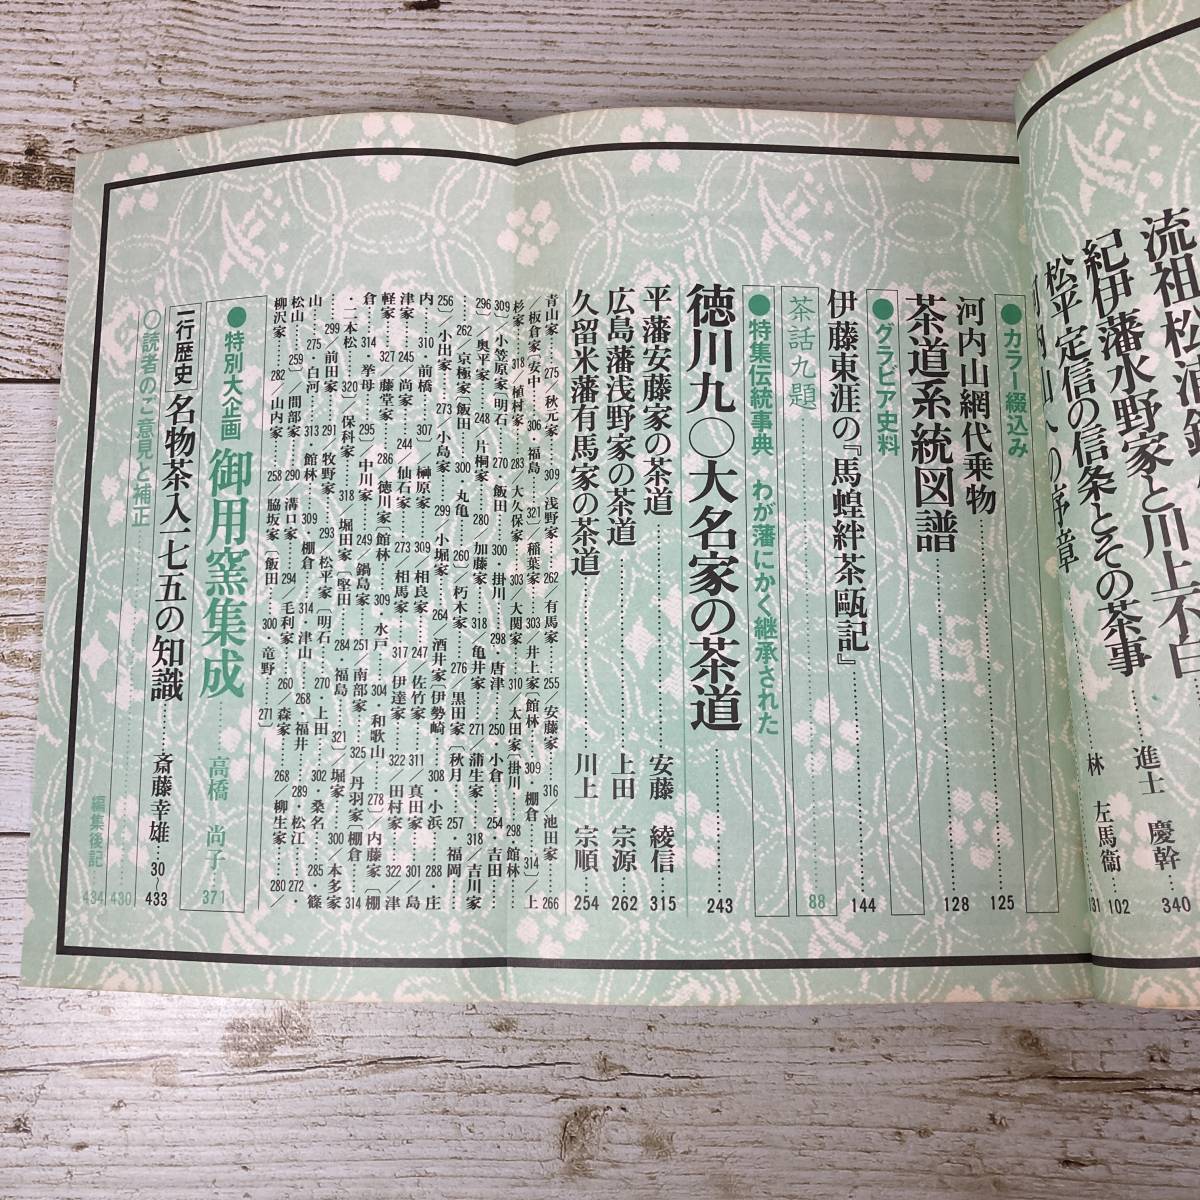 紀伊藩水野家と川上不白……進士 慶幹……340
松平定信の信条とその茶事……林 左馬衞……102
●カラー綴込み
河内山網代乗物……125
茶道系統図譜……128
●グラビア史料
伊藤東涯の『馬蝗絆茶甌記』……144
茶話九題……88
●特集伝統事典 わが藩にかく継承された
徳川九〇大名家の茶道……243
平藩安藤家の茶道……安藤 綾信……315
広島藩浅野家の茶道……上田 宗源……262
久留米藩有馬家の茶道……川上 宗順……254
青山家……275／秋元家……309 浅野家……262／有馬家……255 安藤家……316／池田家……266
／板倉家〔安中……306・福島……321〕／稲葉家……303／井上家〔館林……309・棚倉……314〕／上
杉家……318／植村家……283／大久保家……303／大関家……310／太田家〔掛川……298・館林……
309／小笠原家〔明石……270・飯田……300・掛川……298・唐津……250・小倉……254・吉田……
296〕／奥平家……248 片桐家……280／加藤家……318／亀井家……271／蒲生家……318／吉川家
……262／京極家〔飯田……300 丸亀……260〕／朽木家……276／黒田家〔秋月……257・福岡……
256〕／小出家……273／小島家……299／小堀家……264 酒井家〔伊勢崎……308・小浜……288・庄
内……310 前橋……307〕／榊原家……309／相良家……247 佐竹家……311／真田家……301／島
津家……245 尚家……244 仙石家……273／相馬家……317／伊達家……322／田村家……322／津
軽家……327／藤堂家……286／徳川家〔館林……309・水戸……304・和歌山……278〕／内藤家〔棚
倉……314・挙母……295〕／中川家……249／鍋島家……251／南部家……325 丹羽家〔棚倉……314
・二本松……320〕／保科家……318／堀田家〔堅田……284・福島……321〕／堀家……300／本多家
……299／前田家……291／牧野家……293／松平家〔明石……270・上田……302・桑名……285・篠
山……275・白河……313 館林……309・棚倉……314・津山……268・福井……289・松江……272・
松山……259〕／間部家……290 溝口家……294／毛利家……260／森家……268／柳生家……280／
柳沢家……282 山内家……258 脇坂家〔飯田……300・竜野……271〕
●特別大企画 御用窯集成……高橋 尚子……371
一行歴史 名物茶入一七五の知識……斎藤幸雄……30……433
〇読者のご意見と補正……430
編集後記 434